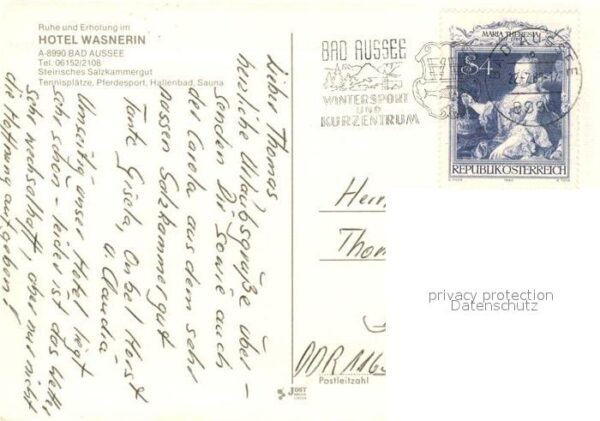 Ruhe und Erholung im
HOTEL WASNERIN
A-8990 BAD AUSSEE
Tel. 06152/2108
Steirisches Salzkammergut
Tennisplätze, Pferdesport, Hallenbad, Sauna
Lieber Thomas
herzliche Urlaubsgrüße über-
senden Dir sowie auch
der Carola aus dem sehr
nassen Salzkammergut
Tante Gisela, Onkel Horst
u. Claudia
Umseitig unser Hotel liegt
sehr schön - leider ist das Wetter
sehr wechselhaft, aber nur nicht
die Hoffnung aufgeben!
BAD AUSSEE
WINTERSPORT
UND
KURZENTRUM
BAD AUSSEE
8990
MARIA THERESIA
S4
REPUBLIK ÖSTERREICH
Herrn
Thom
DDR 116
Postleitzahl
JOST
privacy protection
Datenschutz